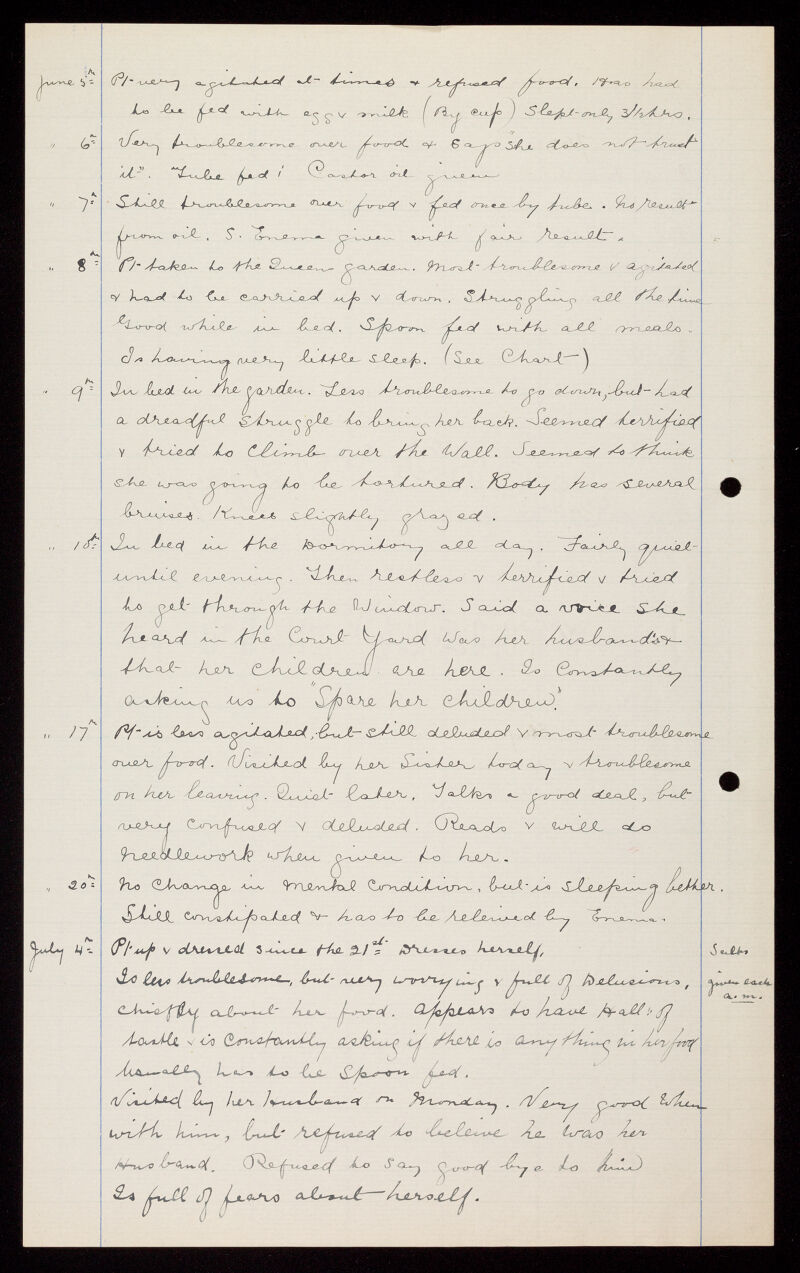 June 5th Pt very agitated at times & refused food. Has had
to be fed with egg & milk (By cup) Slept only 3½ hrs.
" 6th Very troublesome over food & says "she does not trust
it". Tube fed! Castor oil given
" 7th Still troublesome over food & fed once by tube. No result
from oil. S. Enema given with fair result.
" 8th Pt taken to the Queens garden. Most troublesome & agitated
& had to be carried up & down. Struggling all the time
Good while in bed. Spoon fed with all meals.
Is having very little sleep. (See Chart)
" 9th In bed in the garden. Less troublesome to go down, but had
a dreadful struggle to bring her back. Seemed terrified
& tried to climb over the Wall. Seemed to think
she was going to be tortured. Body has several
bruises. Knees slightly grazed.
" 10th In bed in the Dormitory all day. Fairly quiet
until evening. Then restless & terrified & tried
to get through the Window. Said a voice she
heard in the Court Yard was her husband's &
that her children are here. Is Constantly
asking us to "Spare her children".
" 17th Pt is less agitated, but still deluded & most troublesome
over food. Visited by her Sister today & troublesome
on her leaving. Quiet later. Talks a good deal, but
very confused & deluded. Reads & will do
needlework when given to her.
" 20th No change in mental condition, but is sleeping better.
Still constipated & has to be releived by Enema.
July 4th Pt up & dressed since the 21st. Dresses herself. Salts
Is less troublesome, but very worrying & full of Delusions, given each
chiefly about her food. Appears to have Halls: of a.m.
taste & is constantly asking if there is anything in her food
Usually has to be Spoon fed.
Visited by her husband on Monday. Very good When
with him, but refused to beleive he was her
Husband. Refused to say good bye to him
Is full of fears about herself.